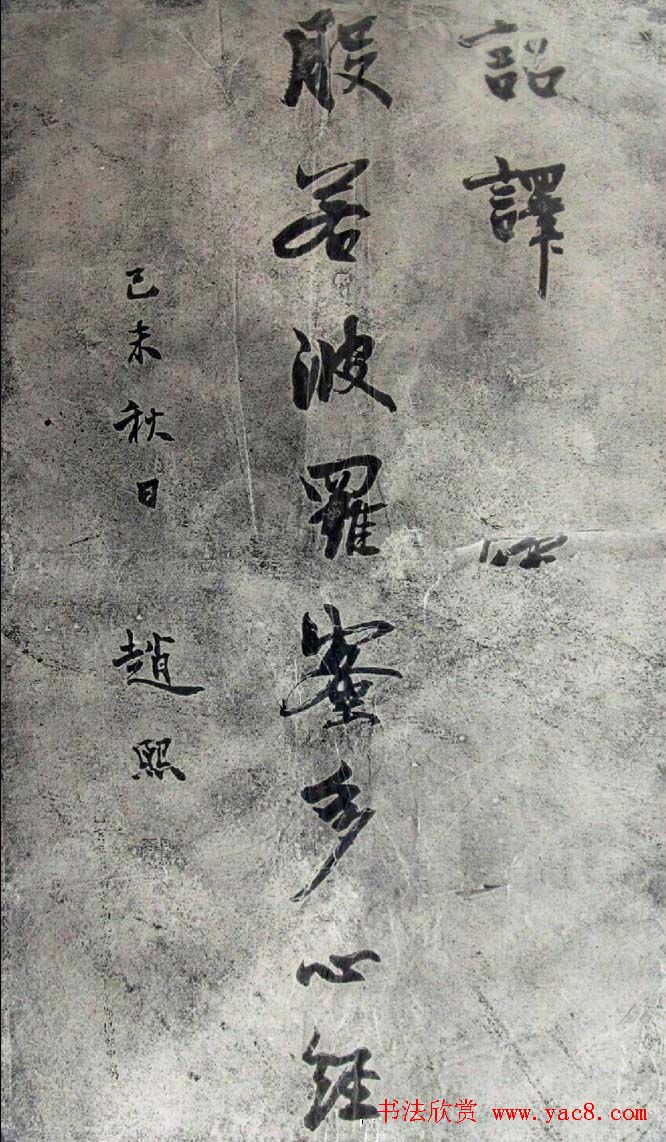 詔譯
般若波羅蜜多心経
己未秋日 趙熙
书法欣赏 www.yac8.com